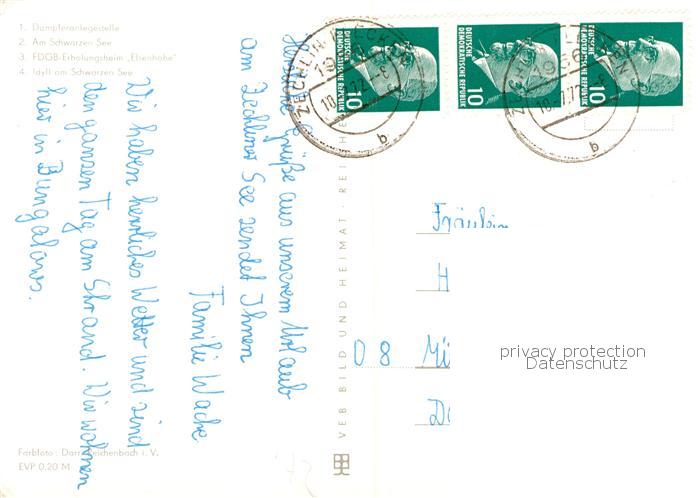 1. Dampferanlegestelle
2. Am Schwarzen See
3. FDGB-Erholungsheim „Elsenhöhe"
4. Idyll am Schwarzen See
Herzliche Grüße aus unserem Urlaub
am Zechliner See sendet Ihnen
Familie Wache
Wir haben herrliches Wetter und sind
den ganzen Tag am Strand. Wir wohnen
hier in Bungalows.
Farbfoto: Darr, Reichenbach i. V.
EVP 0.20 M
VEB BILD UND HEIMAT · REICHE
DEUTSCHE
DEMOKRATISCHE REPUBLIK
10
DEUTSCHE
DEMOKRATISCHE REPUBLIK
10
DEUTSCHE
DEMOKRATISCHE REPUBLIK
10
b
b
Fräulein
H
08 Mü
privacy protection
Datenschutz